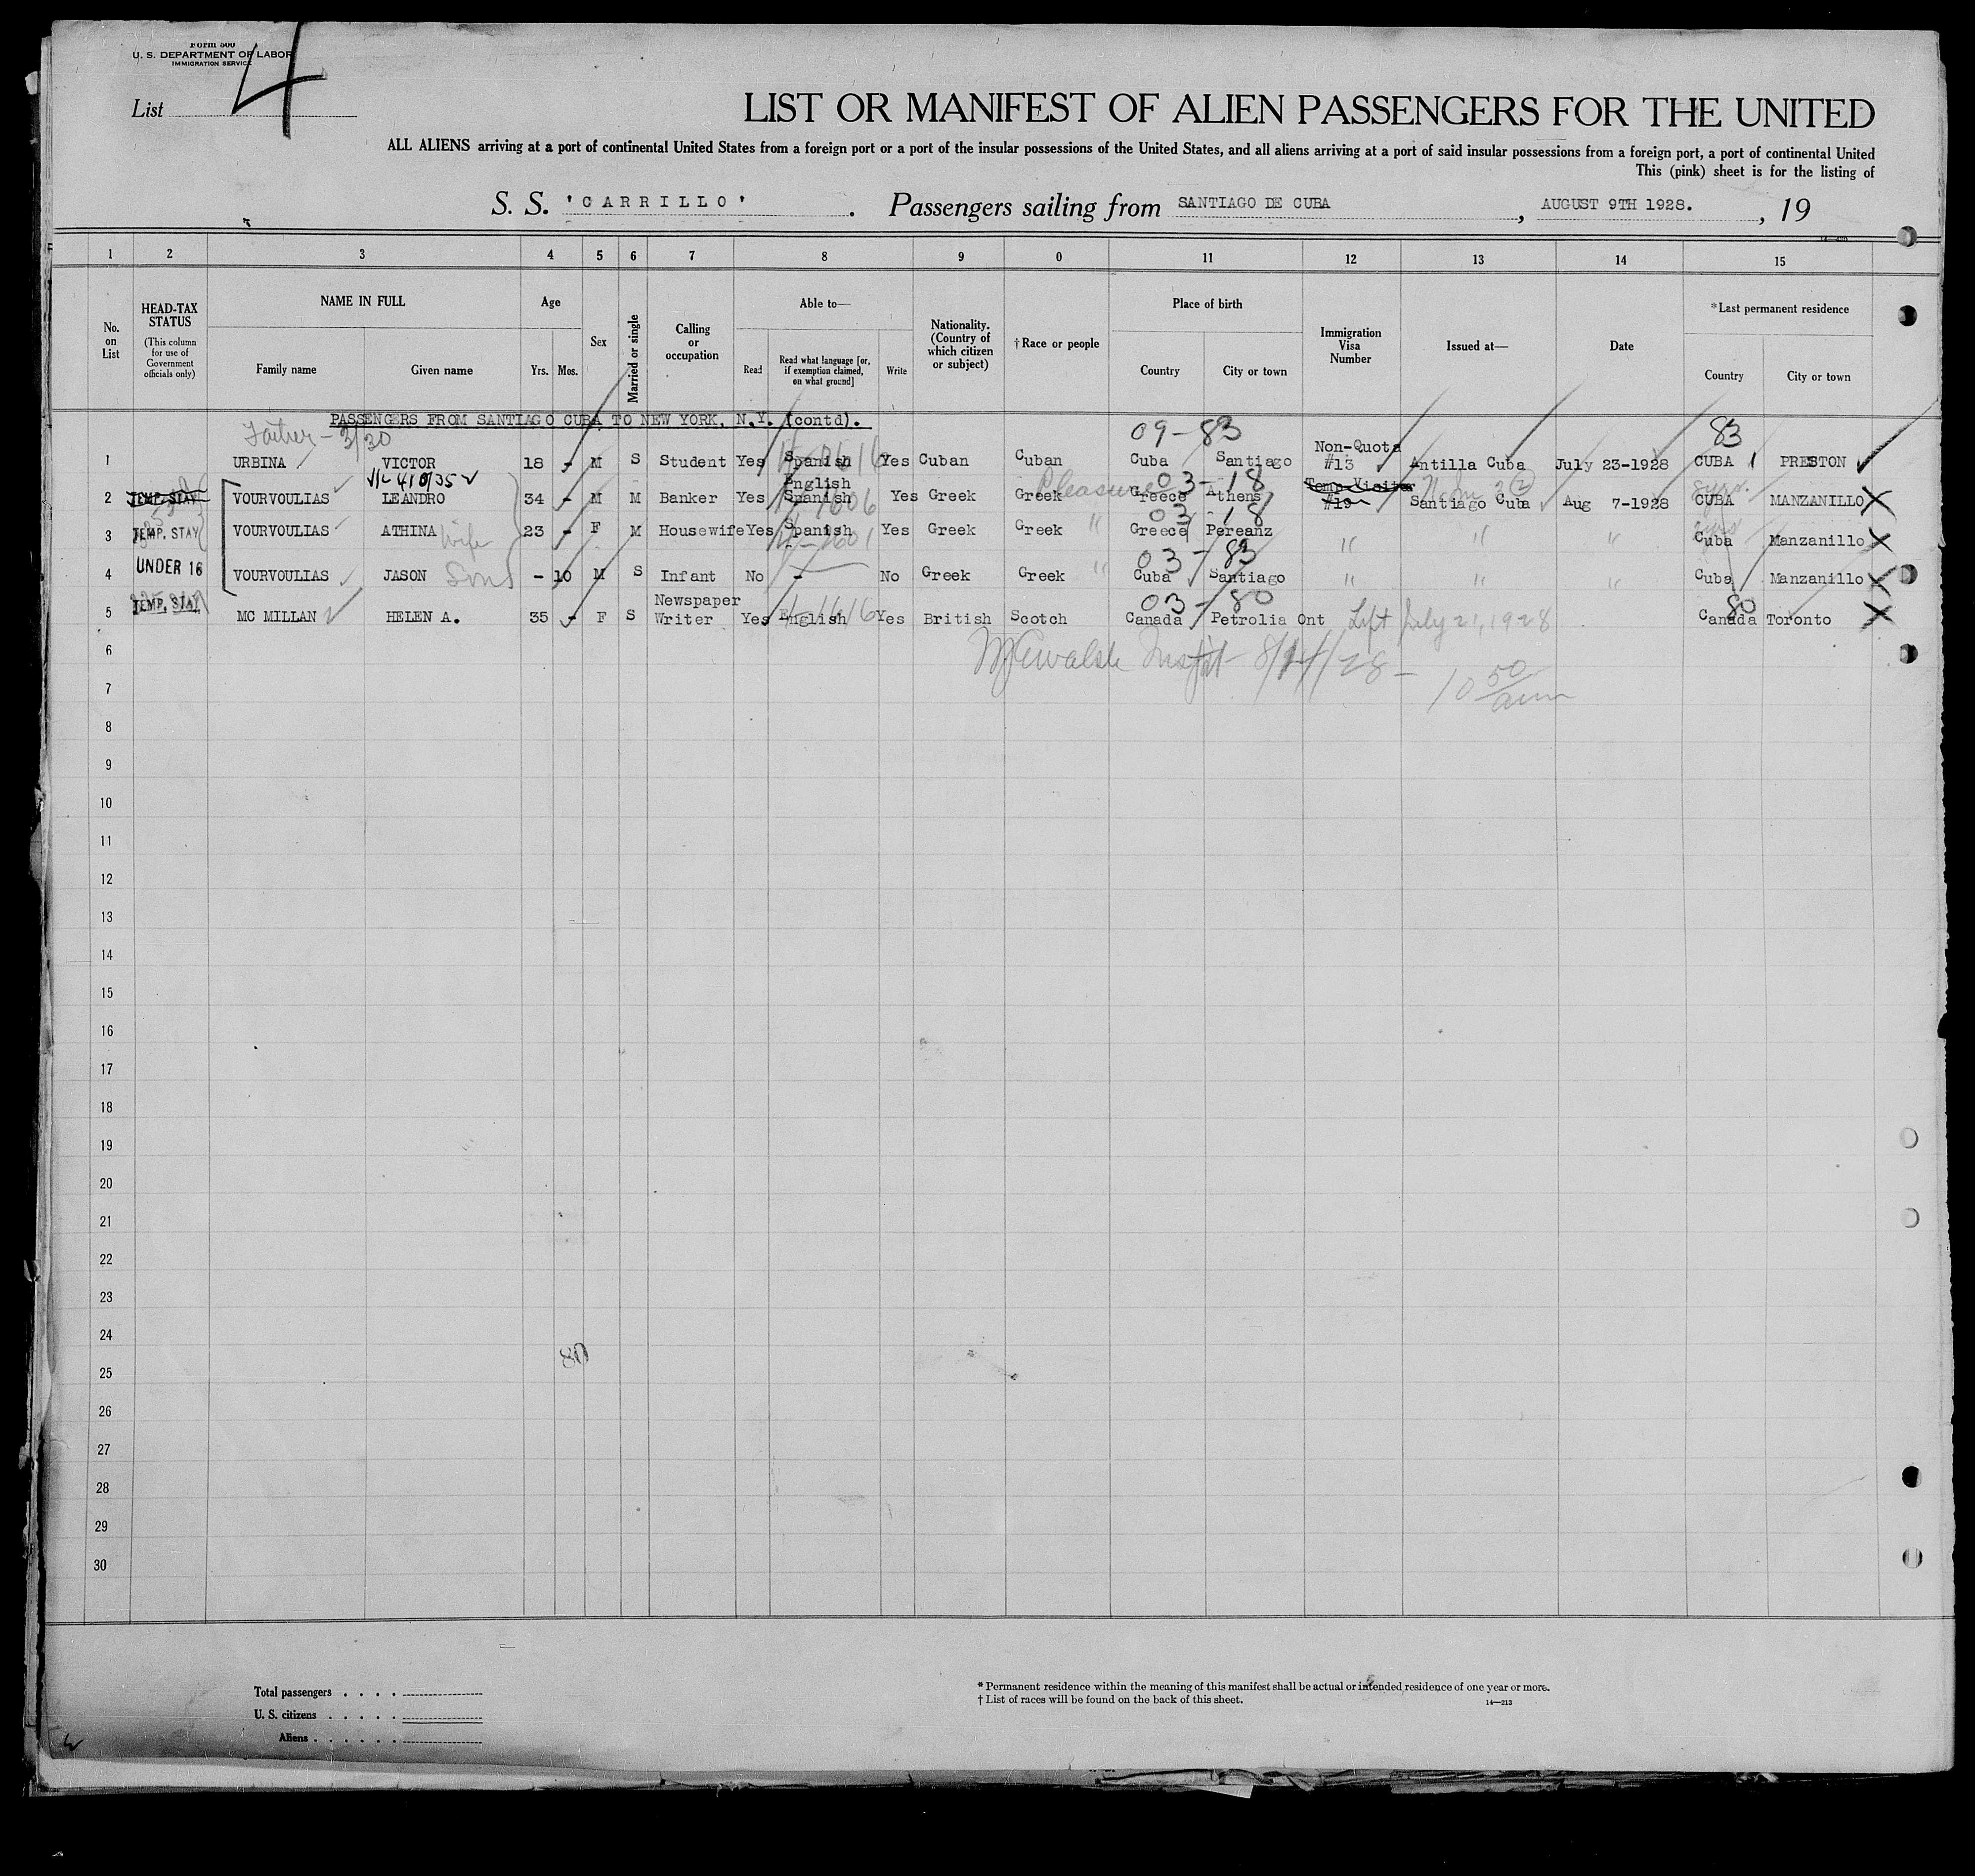 Form 500
U. S. DEPARTMENT OF LABOR
IMMIGRATION SERVICE
List 4
LIST OR MANIFEST OF ALIEN PASSENGERS FOR THE UNITED
ALL ALIENS arriving at a port of continental United States from a foreign port or a port of the insular possessions of the United States, and all aliens arriving at a port of said insular possessions from a foreign port, a port of continental United
This (pink) sheet is for the listing of
S. S. 'CARRILLO'. Passengers sailing from SANTIAGO DE CUBA, AUGUST 9TH 1928., 19
1 2 3 4 5 6 7 8 9 0 11 12 13 14 15
No. on List
HEAD-TAX STATUS (This column for use of Government officials only)
NAME IN FULL
Family name Given name
Age
Yrs. Mos.
Sex
Married or single
Calling or occupation
Able to—
Read Read what language [or, if exemption claimed, on what ground] Write
Nationality. (Country of which citizen or subject)
† Race or people
Place of birth
Country City or town
Immigration Visa Number
Issued at—
Date
* Last permanent residence
Country City or town
PASSENGERS FROM SANTIAGO CUBA TO NEW YORK, N.Y. (contd).
Father - 3/30 09-83 83
1 URBINA VICTOR 18 - M S Student Yes Spanish Yes Cuban Cuban Cuba Santiago Non-Quota #13 Antilla Cuba July 23-1928 CUBA PRESTON
03-18
2 TEMP. STAY VOURVOULIAS LEANDRO 34 - M M Banker Yes English Spanish Yes Greek Greek Pleasure Greece Athens Temp Visitor #19 Santiago Cuba Aug 7-1928 CUBA MANZANILLO
03 18
3 TEMP. STAY VOURVOULIAS ATHINA wife 23 - F M Housewife Yes Spanish Yes Greek Greek " Greece Pereanz " " " Cuba Manzanillo
03-83
4 UNDER 16 VOURVOULIAS JASON Son - 10 M S Infant No - No Greek Greek " Cuba Santiago " " " Cuba Manzanillo
03-80 80
5 TEMP. STAY MC MILLAN HELEN A. 35 - F S Newspaper Writer Yes English Yes British Scotch Canada Petrolia Ont Left July 21, 1928 Canada Toronto
8/14/28 -
10 50/am
6
7
8
9
10
11
12
13
14
15
16
17
18
19
20
21
22
23
24
25
26
27
28
29
30
Total passengers
U. S. citizens
Aliens
* Permanent residence within the meaning of this manifest shall be actual or intended residence of one year or more.
† List of races will be found on the back of this sheet.
14—213